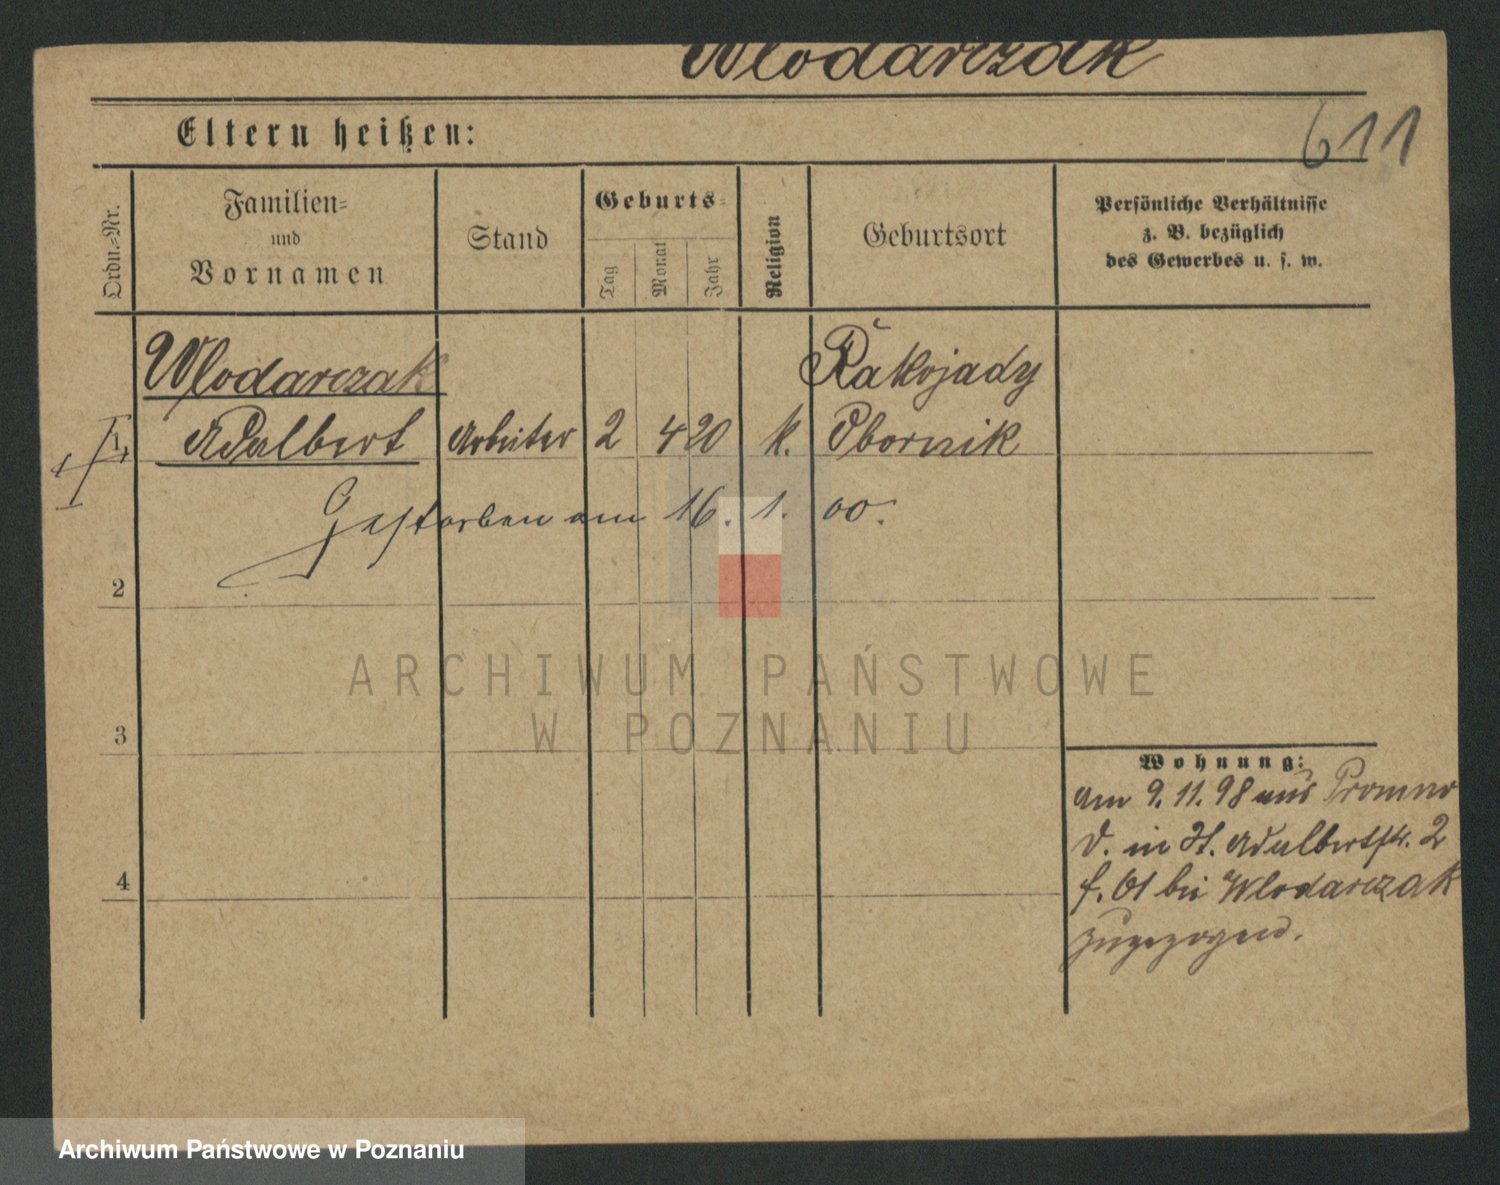 Wlodarczak
Eltern heißen:
611
Ordn.=Nr.
Familien=
und
Vornamen
Stand
Geburts=
Tag
Monat
Jahr
Religion
Geburtsort
Persönliche Verhältnisse
z. B. bezüglich
des Gewerbes u. s. w.
Wlodarczak Rakojady
1 Adalbert Arbeiter 2 4 20 k. Obornik
Gestorben am 16. 1. 00.
2
ARCHIWUM PAŃSTWOWE
W POZNANIU
3
Wohnung:
am 9. 11. 98 aus Promno
d. in St. Adalbertstr. 2
f. 61 bei Wlodarczak
zugezogen.
4
Archiwum Państwowe w Poznaniu